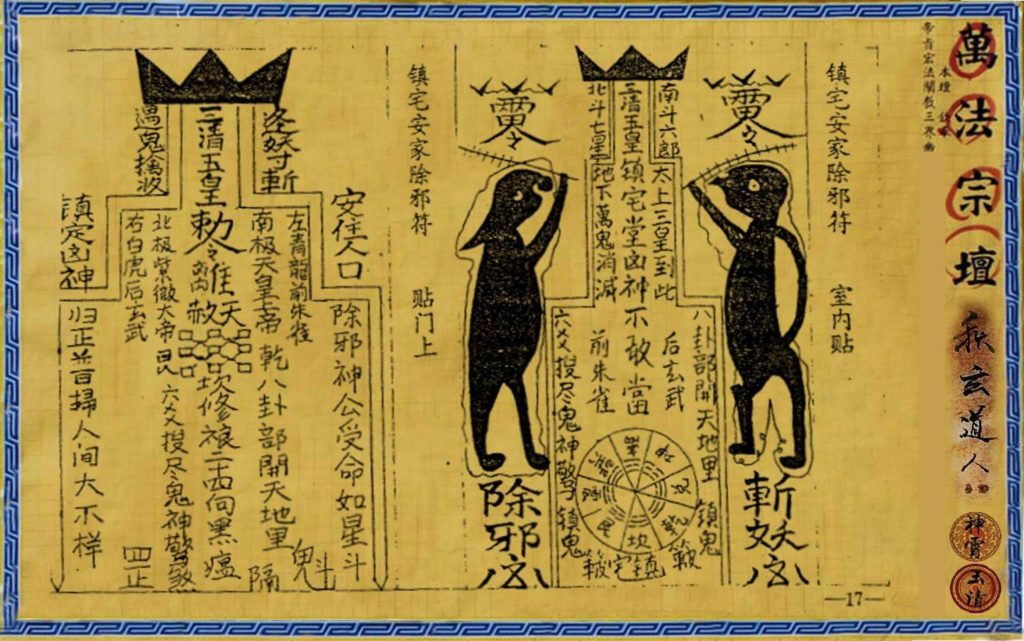 萬法宗壇
玄道人
镇宅安家除邪符
室内贴
雷令
斬妖
南斗六郎
太上三皇到此
三清玉皇镇宅堂凶神不敢當
北斗七星
地下萬鬼消滅
八卦部開天地里
镇鬼
后玄武
前朱雀
六爻搜尽鬼神驚
镇鬼
兑
乾
坎
艮
镇宅
雷令
除邪
镇宅安家除邪符
贴门上
逢妖寸斬
三清玉皇
遇鬼擒收
安住人口
镇定凶神
除邪神公受命如星斗
左青龍前朱雀
南極天皇大帝乾八卦部開天地里
敕令
北極紫微大帝
右白虎后玄武
六爻搜尽鬼神驚煞
归正普扫人间大不样
四正
隔
鬼
—17—